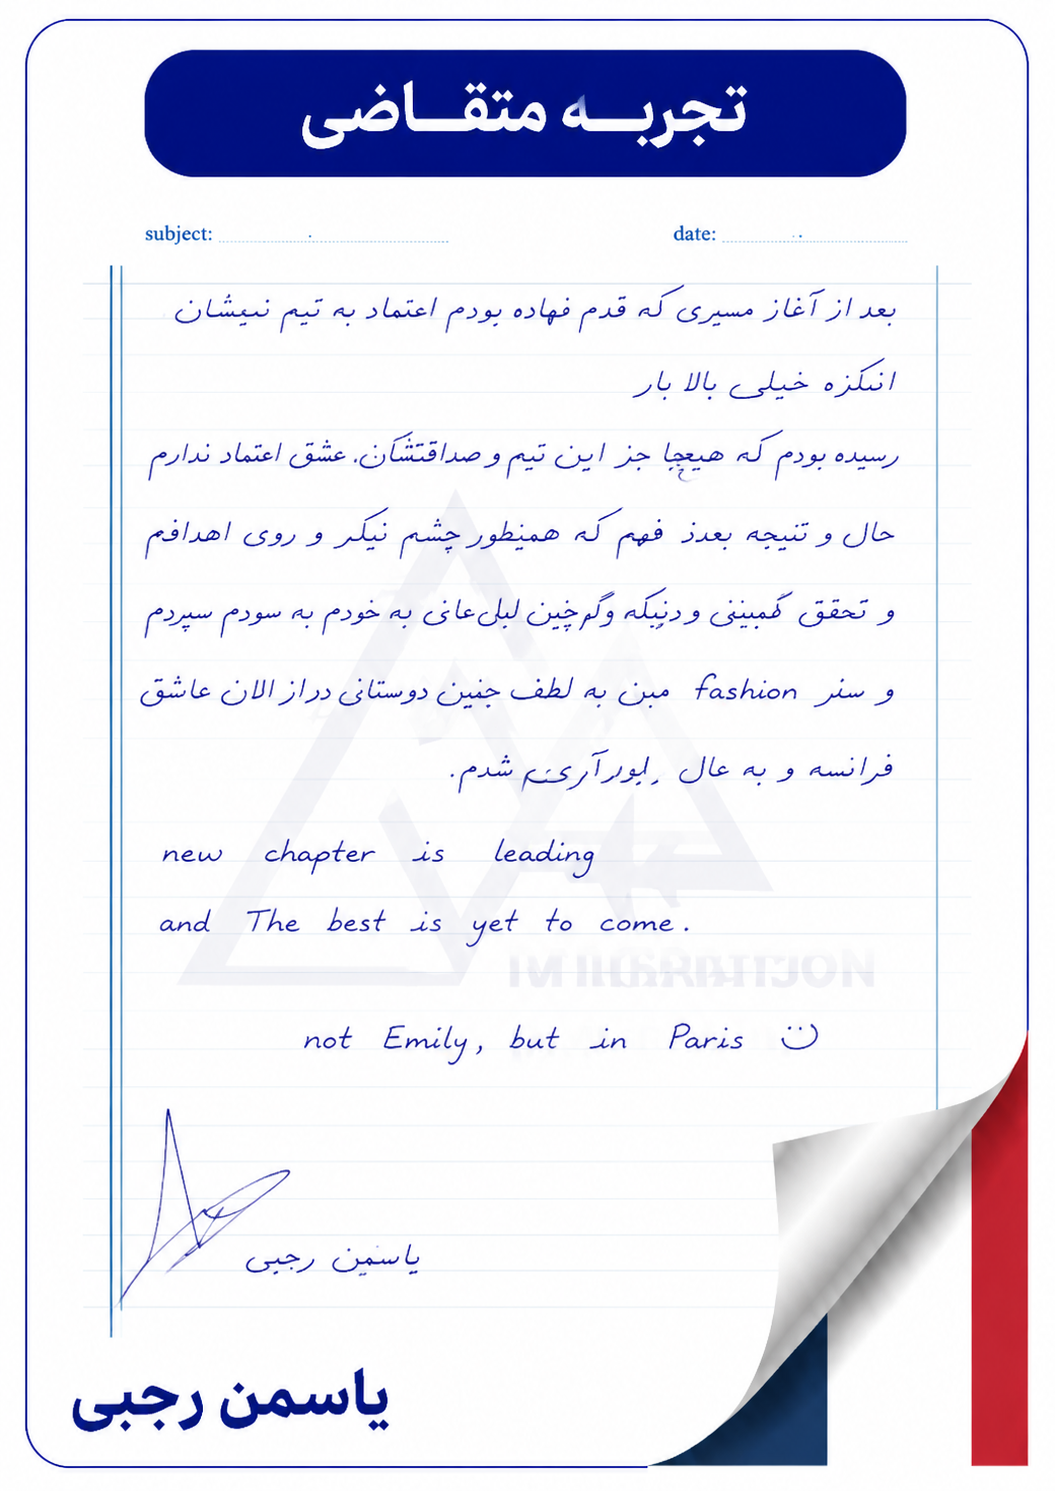 تجربه متقاضی
subject:
date:
بعد از آغاز مسیری که قدم فهاده بودم اعتماد به تیم نیشان
انگزه خیلی بالا بار
رسیده بودم که هیچجا جز این تیم و صداقتشان. عشق اعتماد ندارم
حال و تنیجه بعدذ فهم که همنیطور چشم نیکر و روی اهدافم
و تحقق به خودم به سودم سپردم
و سنر fashion مبن به لطف چنین دوستانی دراز الان عاشق
فرانسه و به عال شدم.
new chapter is leading
and The best is yet to come.
not Emily, but in Paris
یاسمین رجبی
یاسمن رجبی